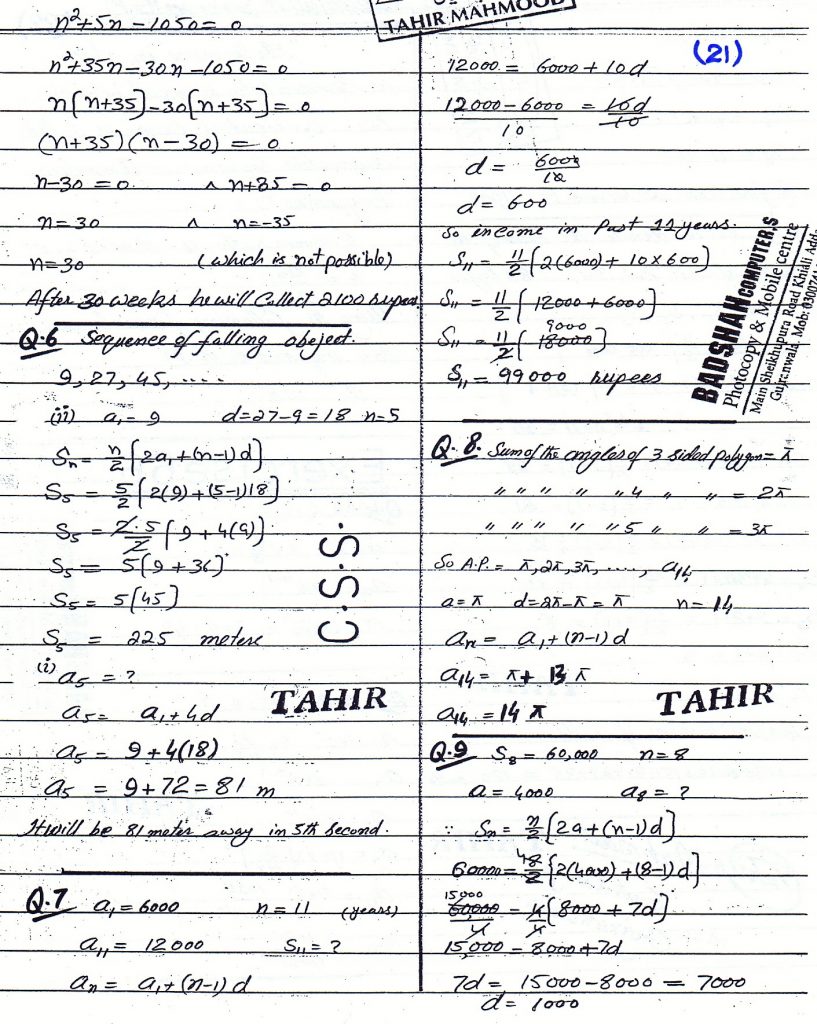 TAHIR MAHMOOD
(21)
n²+5n-1050= 0
n²+35n-30n-1050= 0
n[n+35]-30[n+35]= 0
(n+35)(n-30) = 0
n-30 = 0 ^ n+35 = 0
n=30 ^ n=-35
n=30 (which is not possible)
After 30 weeks he will Collect 2100 rupees.
Q.6 Sequence of falling obeject.
9, 27, 45, ....
(ii) a₁= 9 d=27-9=18 n=5
Sn= n/2 [2a₁+(n-1)d]
S₅ = 5/2 [2(9)+(5-1)18]
S₅ = 2·5/2 [9+4(9)]
S₅ = 5(9+36)
S₅= 5[45]
S₅ = 225 meters
(i) a₅ = ?
a₅= a₁+4d
a₅ = 9+4(18)
a₅ = 9+72=81 m
It will be 81 meter away in 5th second.
C.S.S.
TAHIR
Q.7 a₁=6000 n=11 (years)
a₁₁= 12000 S₁₁= ?
an= a₁+(n-1)d
12000= 6000+10d
12000-6000/10 = 10d/10
d= 6000/10
d= 600
So income in Past 11 years.
S₁₁= 11/2 [2(6000)+ 10×600]
S₁₁= 11/2 [12000+6000]
9000
S₁₁ = 11/2 [18000]
S₁₁= 99000 rupees
BADSHAH COMPUTER,S
Photocopy & Mobile centre
Main Sheikhupura Road Khiali Adda
Gujranwala. Mob:
Q.8. Sum of the angles of 3 sided polygon= π
" " " " " 4 " " = 2π
" " " " " 5 " " = 3π
So A.P.= π, 2π, 3π, ...., a₁₄
a=π d=2π-π= π n= 14
an= a₁+(n-1)d
a₁₄= π+ 13 π
a₁₄ = 14 π
TAHIR
Q.9 S₈= 60,000 n=8
a= 4000 a₈= ?
∵ Sn= n/2 [2a+(n-1)d]
60000= 48/2 [2(4000)+(8-1)d]
15000
60000/4 = 4/4 [8000+7d]
15,000 = 8000+7d
7d= 15000-8000 = 7000
d= 1000